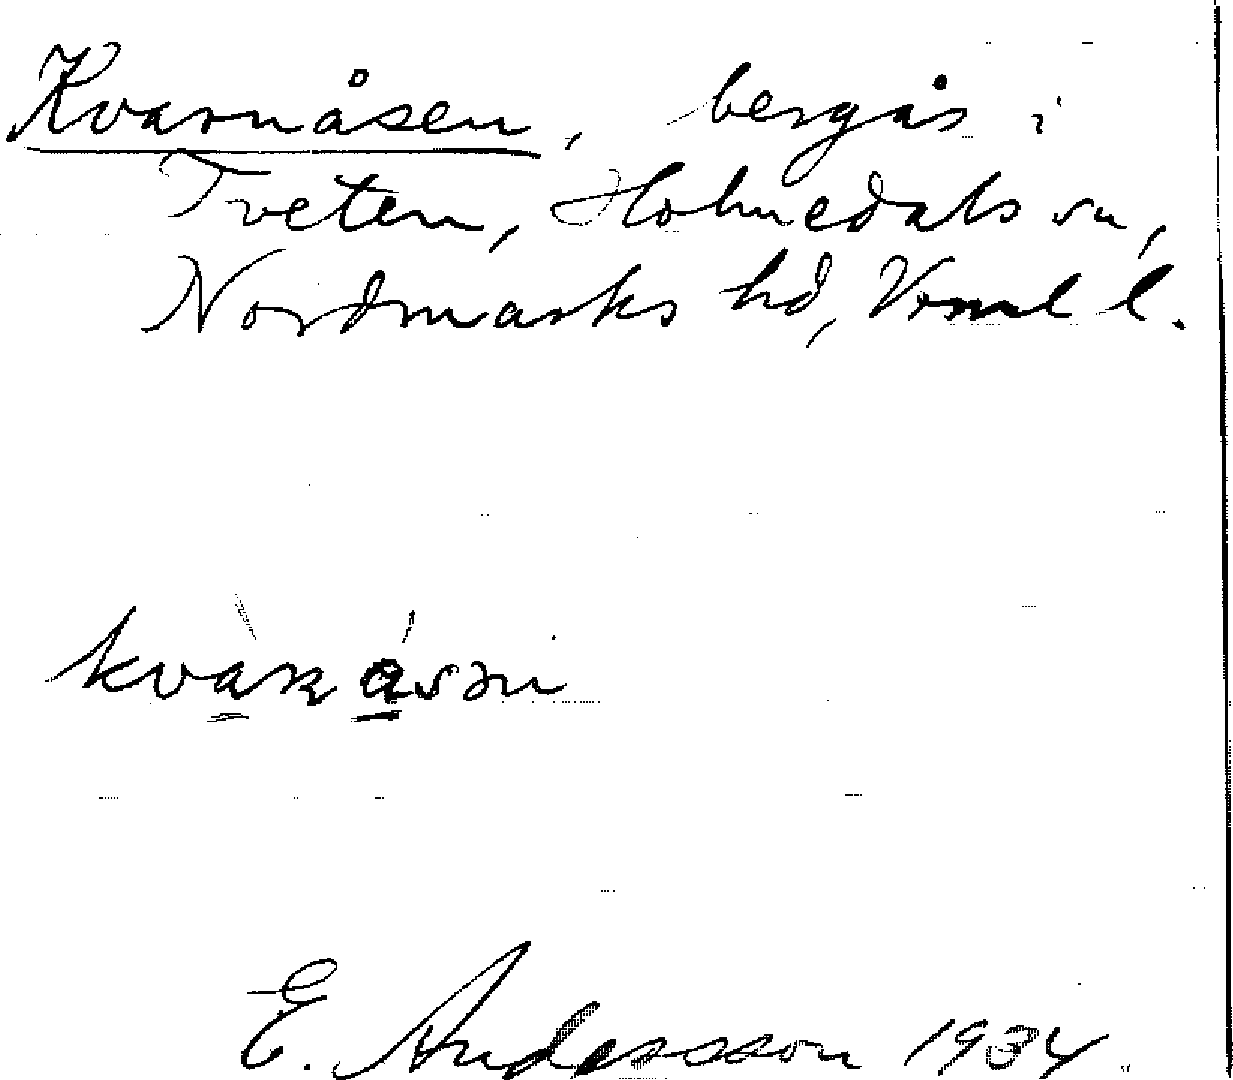 Kvarnåsen, bergås i
Tveten, Holmedals sn,
Nordmarks hd, Vrml l.
E. Andersson 1934